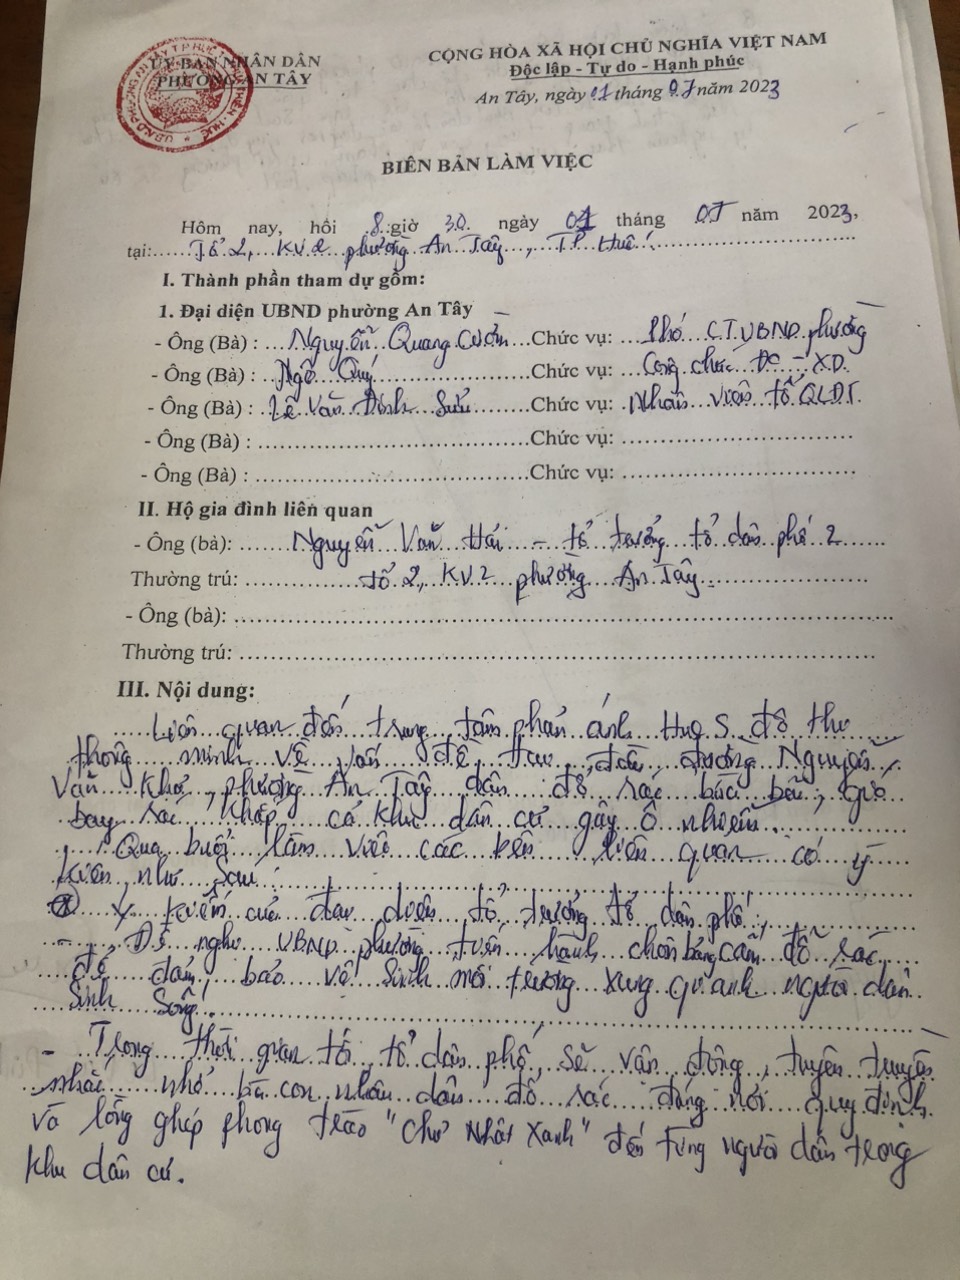 ỦY BAN NHÂN DÂN
PHƯỜNG AN TÂY
CỘNG HÒA XÃ HỘI CHỦ NGHĨA VIỆT NAM
Độc lập - Tự do - Hạnh phúc
An Tây, ngày 01 tháng 07 năm 2023
BIÊN BẢN LÀM VIỆC
Hôm nay, hồi 8 giờ 30 ngày 01 tháng 07 năm 2023,
tại: Tổ 2, KV2 phường An Tây, TP Huế.
I. Thành phần tham dự gồm:
1. Đại diện UBND phường An Tây
- Ông (Bà) : Nguyễn Quang Chức vụ: Phó CT UBND phường
- Ông (Bà) : Ngô Quý Chức vụ: Công chức ĐC - XD.
- Ông (Bà) : Lê Văn Đình Sửu Chức vụ: Nhân viên tổ QLĐT.
- Ông (Bà) : Chức vụ:
- Ông (Bà) : Chức vụ:
II. Hộ gia đình liên quan
- Ông (bà): Nguyễn Văn Hải - tổ trưởng tổ dân phố 2
Thường trú: tổ 2, KV2 phường An Tây.
- Ông (bà):
Thường trú:
III. Nội dung:
Liên quan đến trung tâm phản ánh Hue S đô thị
thông minh về vấn đề đầu đường Nguyễn
Văn Khả, phường An Tây dân đổ rác bừa bãi, gió
bay rác khắp cả khu dân cư gây ô nhiễm.
Qua buổi làm việc các bên liên quan có ý
kiến như sau:
Ý kiến của đại diện tổ trưởng tổ dân phố:
- Đề nghị UBND phường tiến hành chôn bảng cấm đổ rác
để đảm bảo vệ sinh môi trường xung quanh người dân
sinh sống.
- Trong thời gian tới tổ dân phố sẽ vận động, tuyên truyền
nhắc nhở bà con nhân dân đổ rác đúng nơi quy định
và lồng ghép phong trào "Chủ Nhật Xanh" đến từng người dân trong
khu dân cư.